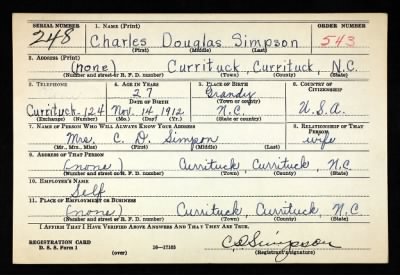 SERIAL NUMBER 1. NAME (Print) ORDER NUMBER
248 Charles Douglas Simpson 543
(First) (Middle) (Last)
2. ADDRESS (Print)
(none) Currituck, Currituck, N.C.
(Number and street or R. F. D. number) (Town) (County) (State)
3. TELEPHONE 4. AGE IN YEARS 5. PLACE OF BIRTH 6. COUNTRY OF CITIZENSHIP
27 Grandy
DATE OF BIRTH (Town or county)
Currituck-124 Nov. 14, 1912 N.C. U.S.A.
(Exchange) (Number) (Mo.) (Day) (Yr.) (State or country)
7. NAME OF PERSON WHO WILL ALWAYS KNOW YOUR ADDRESS 8. RELATIONSHIP OF THAT PERSON
Mrs. C. D. Simpson wife
(Mr., Mrs., Miss) (First) (Middle) (Last)
9. ADDRESS OF THAT PERSON
(none) Currituck, Currituck, N.C.
(Number and street or R. F. D. number) (Town) (County) (State)
10. EMPLOYER'S NAME
Self
11. PLACE OF EMPLOYMENT OR BUSINESS
(none) Currituck, Currituck, N.C.
(Number and street or R. F. D. number) (Town) (County) (State)
I AFFIRM THAT I HAVE VERIFIED ABOVE ANSWERS AND THAT THEY ARE TRUE.
REGISTRATION CARD C D Simpson
D. S. S. Form 1 (over) 16—17105 (Registrant's signature)